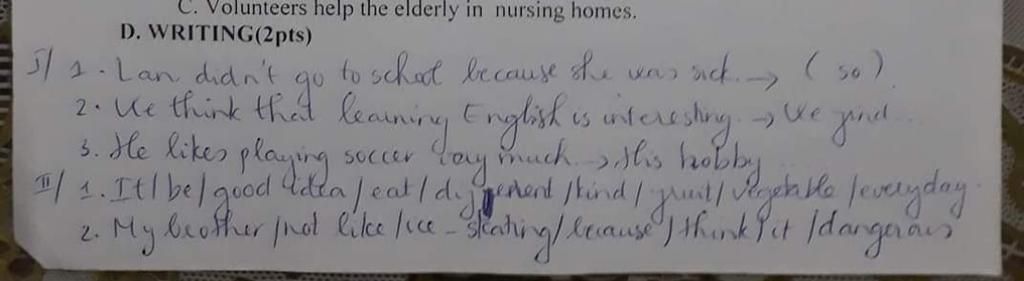 C. Volunteers help the elderly in nursing homes.
D. WRITING(2pts)
I/ 1. Lan didn't go to school because she was sick. → (so)
2. We think that learning English is interesting. → We find...
3. He likes playing soccer very much. → His hobby
II/ 1. It/be/good idea/eat/different/kind/fruit/vegetable/everyday.
2. My brother/not like/ice-skating/because/think/it/dangerous